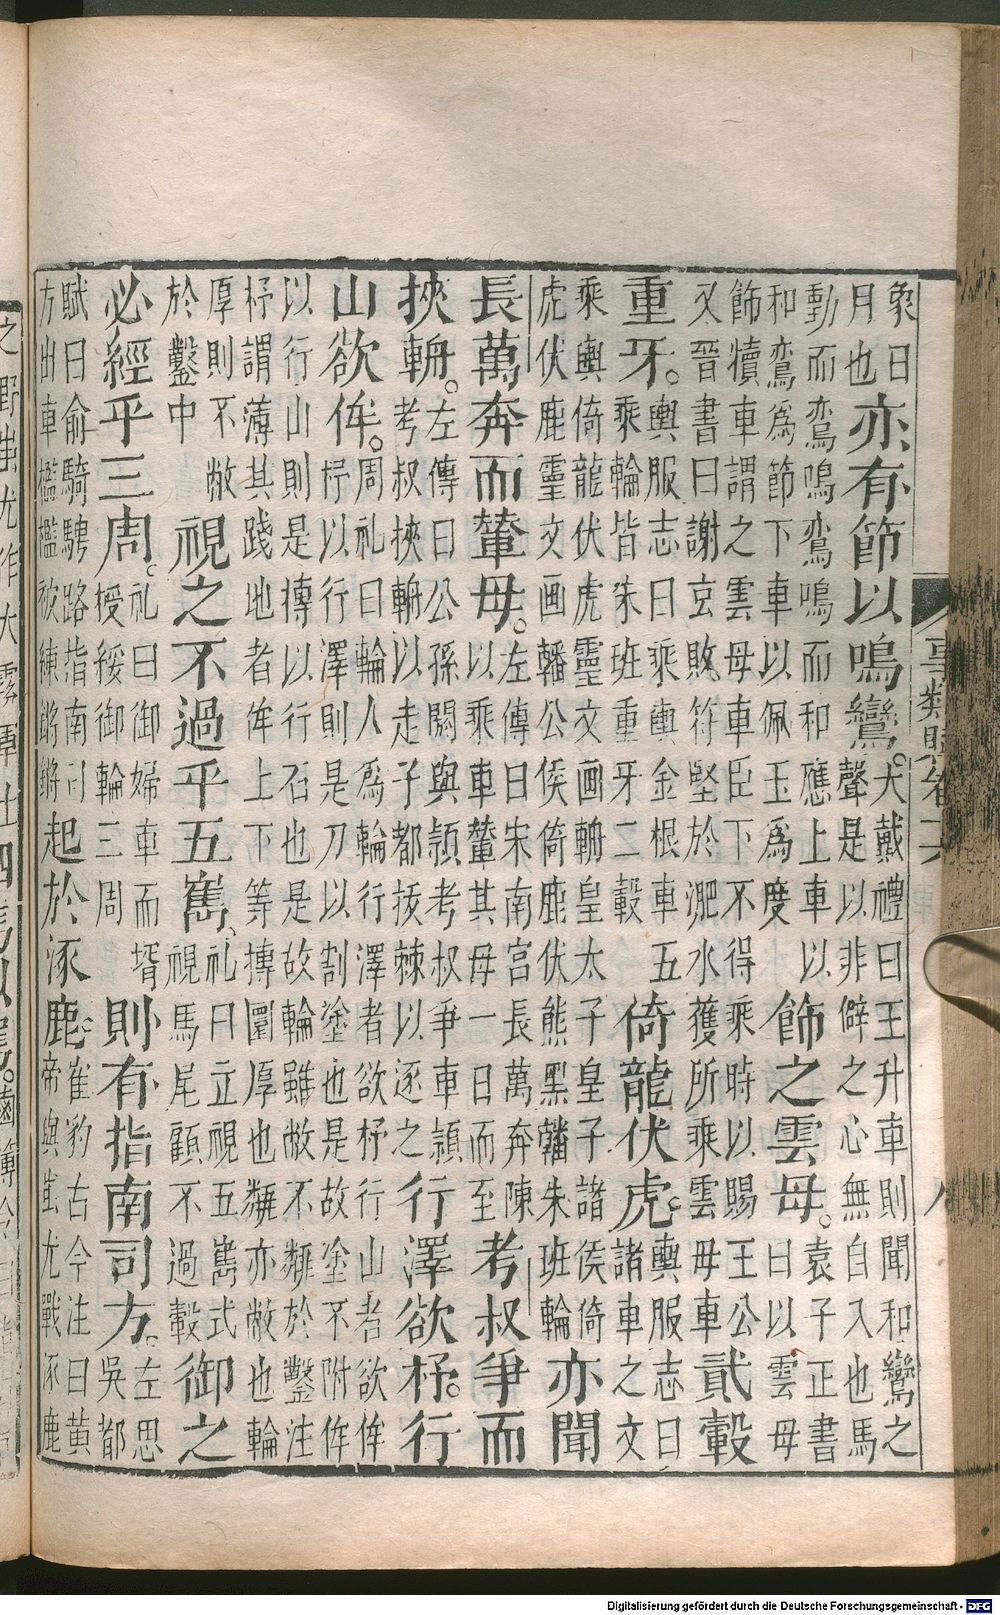 象曰
月也
亦有節以鳴鸞。
大戴禮曰王升車則聞和鸞之
聲是以非僻之心無自入也馬
動而鸞鳴鸞鳴而和應上車以
和鸞為節下車以佩玉為度
飾之雲母。
袁子正書
曰以雲母
飾犢車謂之雲母車臣下不得乘時以賜王公
又晉書曰謝玄敗符堅於淝水獲所乘雲母車
貳轂
重牙。
輿服志曰乘輿金根車五
乘輪皆朱班重牙二轂
倚龍伏虎。
輿服志曰
諸車之文
乘輿倚龍伏虎靈文画輈皇太子皇子諸侯倚
虎伏鹿靈文画轓公侯倚鹿伏熊黑轓朱班輪
亦聞
長萬奔而輦母。
左傳曰宋南宮長萬奔陳
以乘車輦其母一日而至
考叔爭而
挾輈。
左傳曰公孫閼與頴考叔爭車頴
考叔挾輈以走子都拔棘以逐之
行澤欲杼。行
山欲侔。
周礼曰輪人為輪行澤者欲杼行山者欲侔
杼以行澤則是刀以割塗也是故塗不附侔
以行山則是摶以行石也是故輪雖敝不甐於鑿注
杼謂薄其踐地者侔上下等摶圜厚也甐亦敝也輪
厚則不敝
於鑿中
視之不過乎五雟。
礼曰立視五雟式
視馬尾顧不過轂
御之
必經乎三周。
礼曰御婦車而壻
授綏御輪三周
則有指南司方。
左思
吳都
賦曰俞騎騁路指南司
方出車檻檻被練鏘鏘
起於涿鹿。
崔豹古今注曰黃
帝與蚩尤戰涿鹿
事類賦卷十六
八
之野蚩尤作大霧軍士